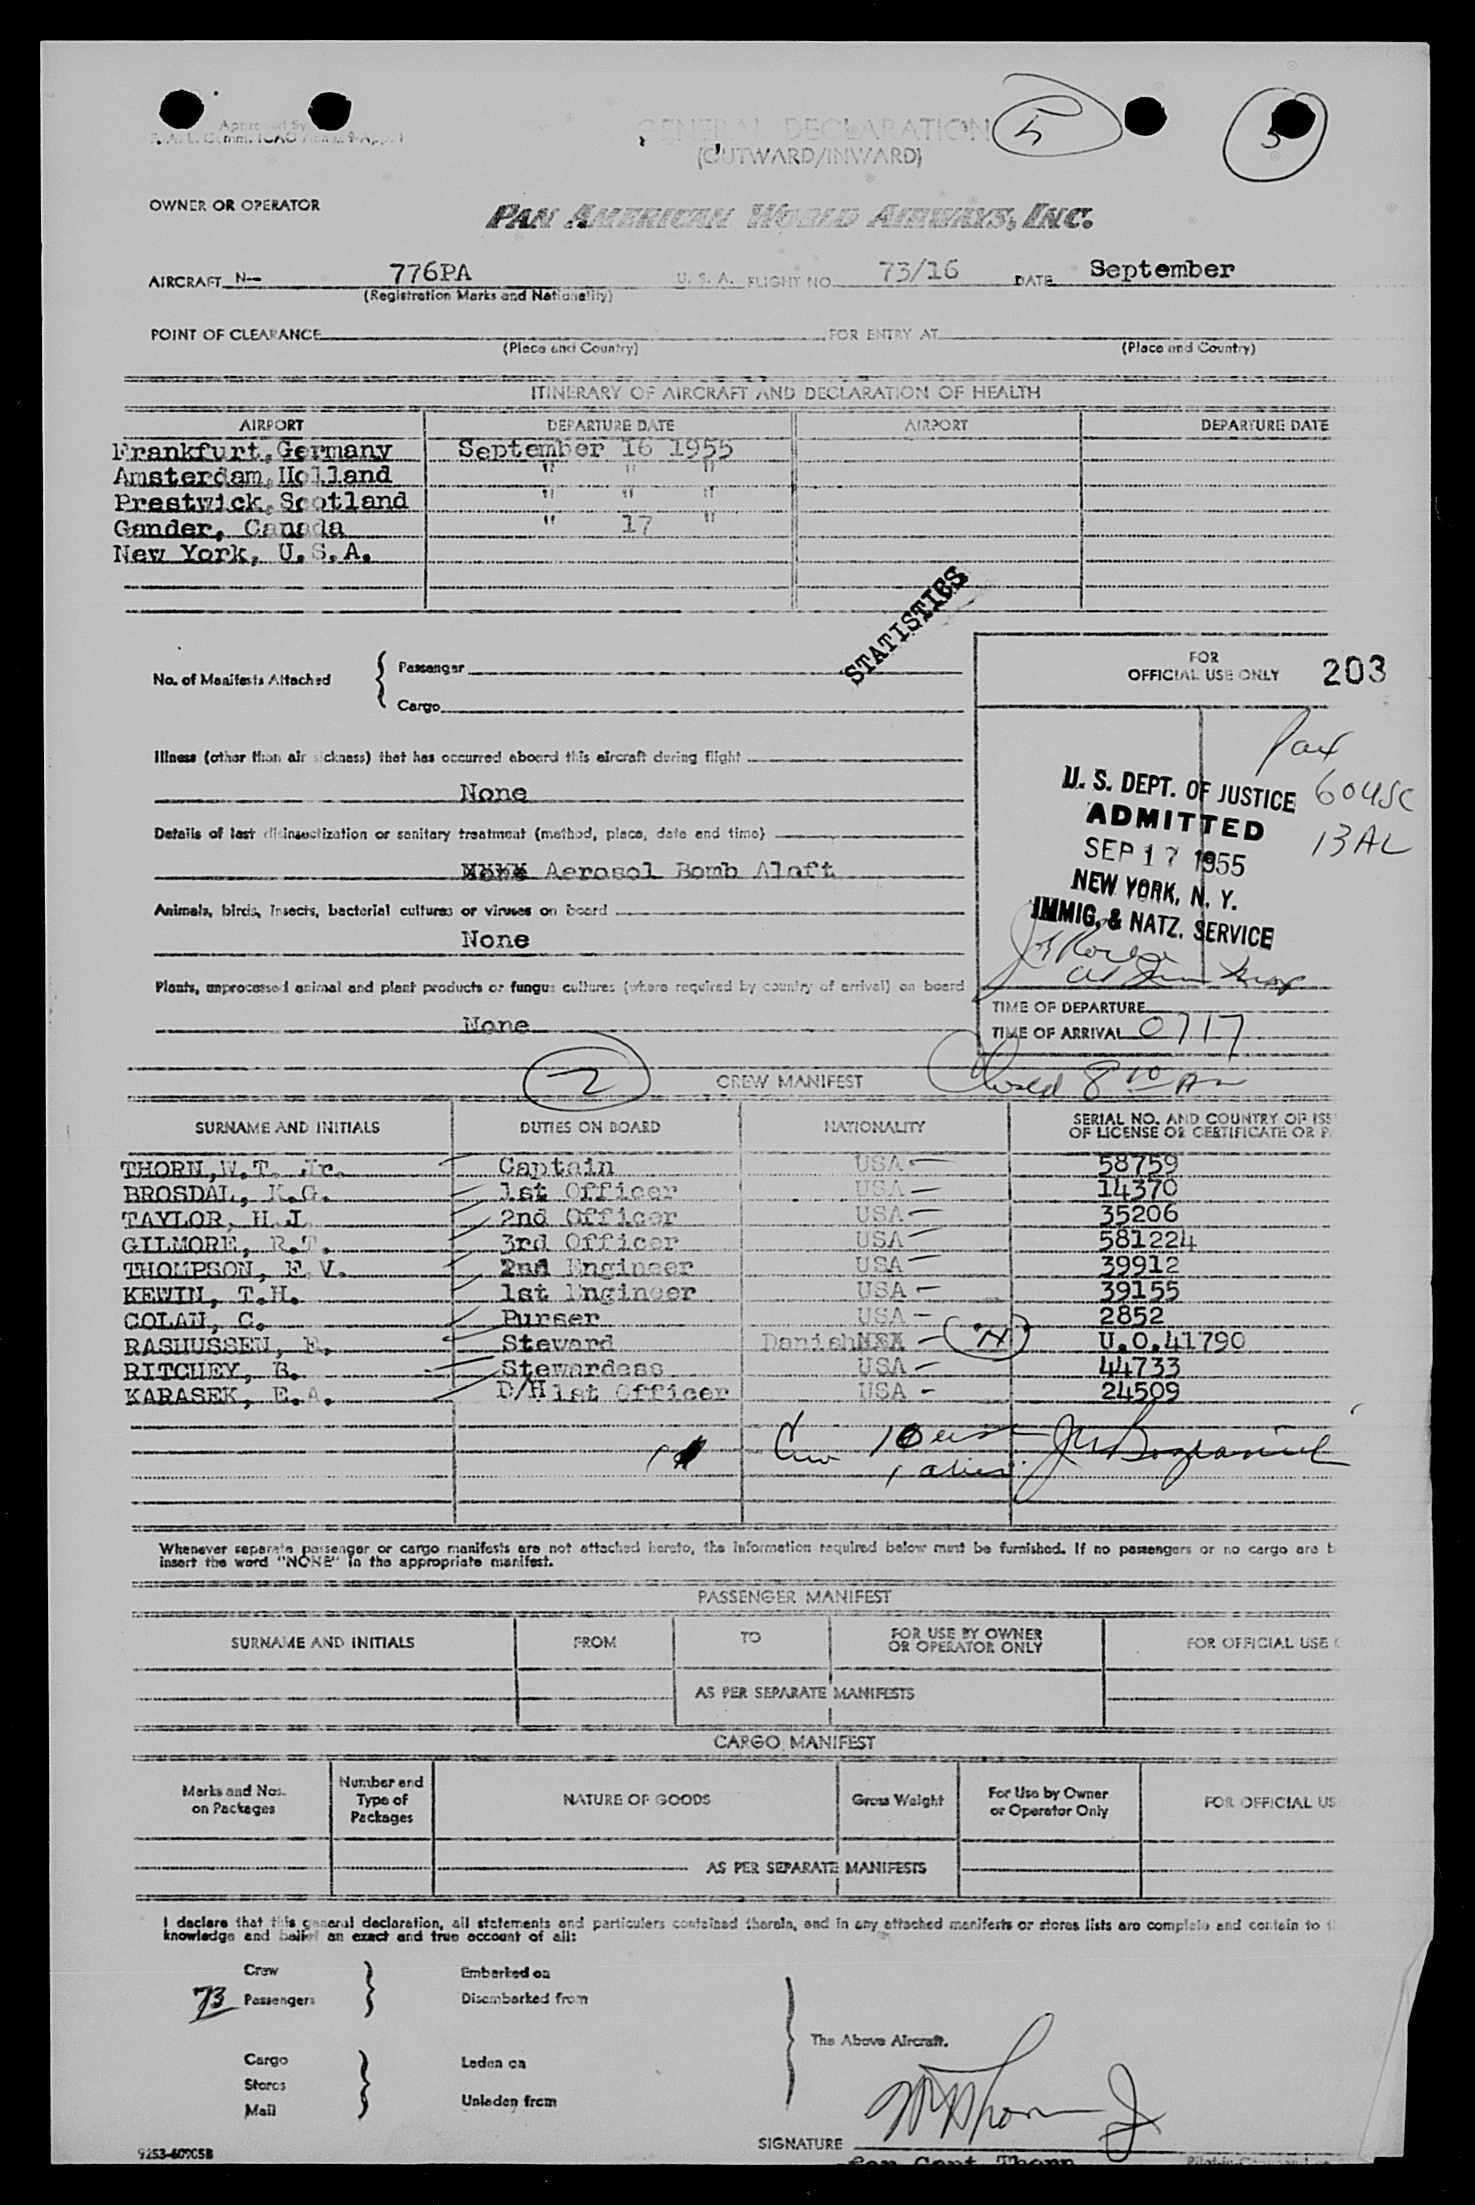 Approved by
GENERAL DECLARATION
(OUTWARD/INWARD)
5
5
OWNER OR OPERATOR
PAN AMERICAN WORLD AIRWAYS, INC.
AIRCRAFT N-- 776PA U. S. A. FLIGHT NO. 73/16 DATE September
(Registration Marks and Nationality)
POINT OF CLEARANCE FOR ENTRY AT
(Place and Country) (Place and Country)
ITINERARY OF AIRCRAFT AND DECLARATION OF HEALTH
AIRPORT DEPARTURE DATE AIRPORT DEPARTURE DATE
Frankfurt, Germany September 16 1955
Amsterdam, Holland " " "
Prestwick, Scotland " " "
Gander, Canada " 17 "
New York, U.S.A.
STATISTICS
No. of Manifests Attached { Passenger
Cargo
FOR
OFFICIAL USE ONLY 203
Pax
60 USC
13 AL
U. S. DEPT. OF JUSTICE
ADMITTED
SEP 17 1955
NEW YORK, N. Y.
IMMIG. & NATZ. SERVICE
Illness (other than air sickness) that has occurred aboard this aircraft during flight
None
Details of last disinsectization or sanitary treatment (method, place, date and time)
Aerosol Bomb Aloft
Animals, birds, insects, bacterial cultures or viruses on board
None
Plants, unprocessed animal and plant products or fungus cultures (where required by country of arrival) on board
None
TIME OF DEPARTURE
TIME OF ARRIVAL 0717
2
CREW MANIFEST
Closed 8 10 Am
SURNAME AND INITIALS DUTIES ON BOARD NATIONALITY SERIAL NO. AND COUNTRY OF ISS
OF LICENSE OR CERTIFICATE OR P
THORN, W.T. Jr. Captain USA 58759
BROSDAL, K.G. 1st Officer USA 14370
TAYLOR, H J 2nd Officer USA 35206
GILMORE, R.T. 3rd Officer USA 581224
THOMPSON, F.V. 2nd Engineer USA 39912
KEWIN, T.H. 1st Engineer USA 39155
COLAN, C. Purser USA 2852
RASMUSSEN, E. Steward Danish "H" U.O.41790
RITCHEY, B. Stewardess USA 44733
KARASEK, E.A. D/H 1st Officer USA 24509
Crew 10
1 alien
Whenever separate passenger or cargo manifests are not attached hereto, the information required below must be furnished. If no passengers or no cargo are
insert the word "NONE" in the appropriate manifest.
PASSENGER MANIFEST
SURNAME AND INITIALS FROM TO FOR USE BY OWNER
OR OPERATOR ONLY FOR OFFICIAL USE
AS PER SEPARATE MANIFESTS
CARGO MANIFEST
Marks and Nos.
on Packages Number and
Type of
Packages NATURE OF GOODS Gross Weight For Use by Owner
or Operator Only FOR OFFICIAL US
AS PER SEPARATE MANIFESTS
I declare that this general declaration, all statements and particulars contained therein, and in any attached manifests or stores lists are complete and contain to
knowledge and belief an exact and true account of all:
Crew Embarked on
73 Passengers Disembarked from
The Above Aircraft.
Cargo Laden on
Stores
Mail Unladen from
SIGNATURE W T Thorn Jr
for Capt. Thorn
9253-60905B